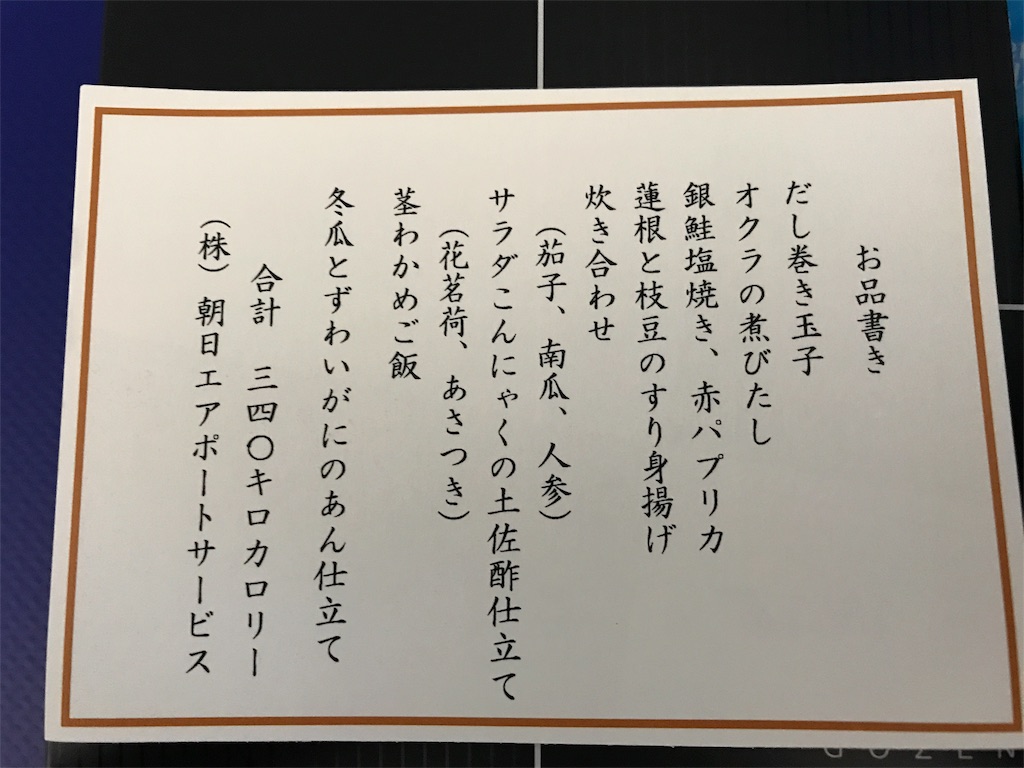 お品書き
だし巻き玉子
オクラの煮びたし
銀鮭塩焼き、赤パプリカ
蓮根と枝豆のすり身揚げ
炊き合わせ
（茄子、南瓜、人参）
サラダこんにゃくの土佐酢仕立て
（花茗荷、あさつき）
茎わかめご飯
冬瓜とずわいがにのあん仕立て
合計　三四〇キロカロリー
（株）朝日エアポートサービス
GOZEN